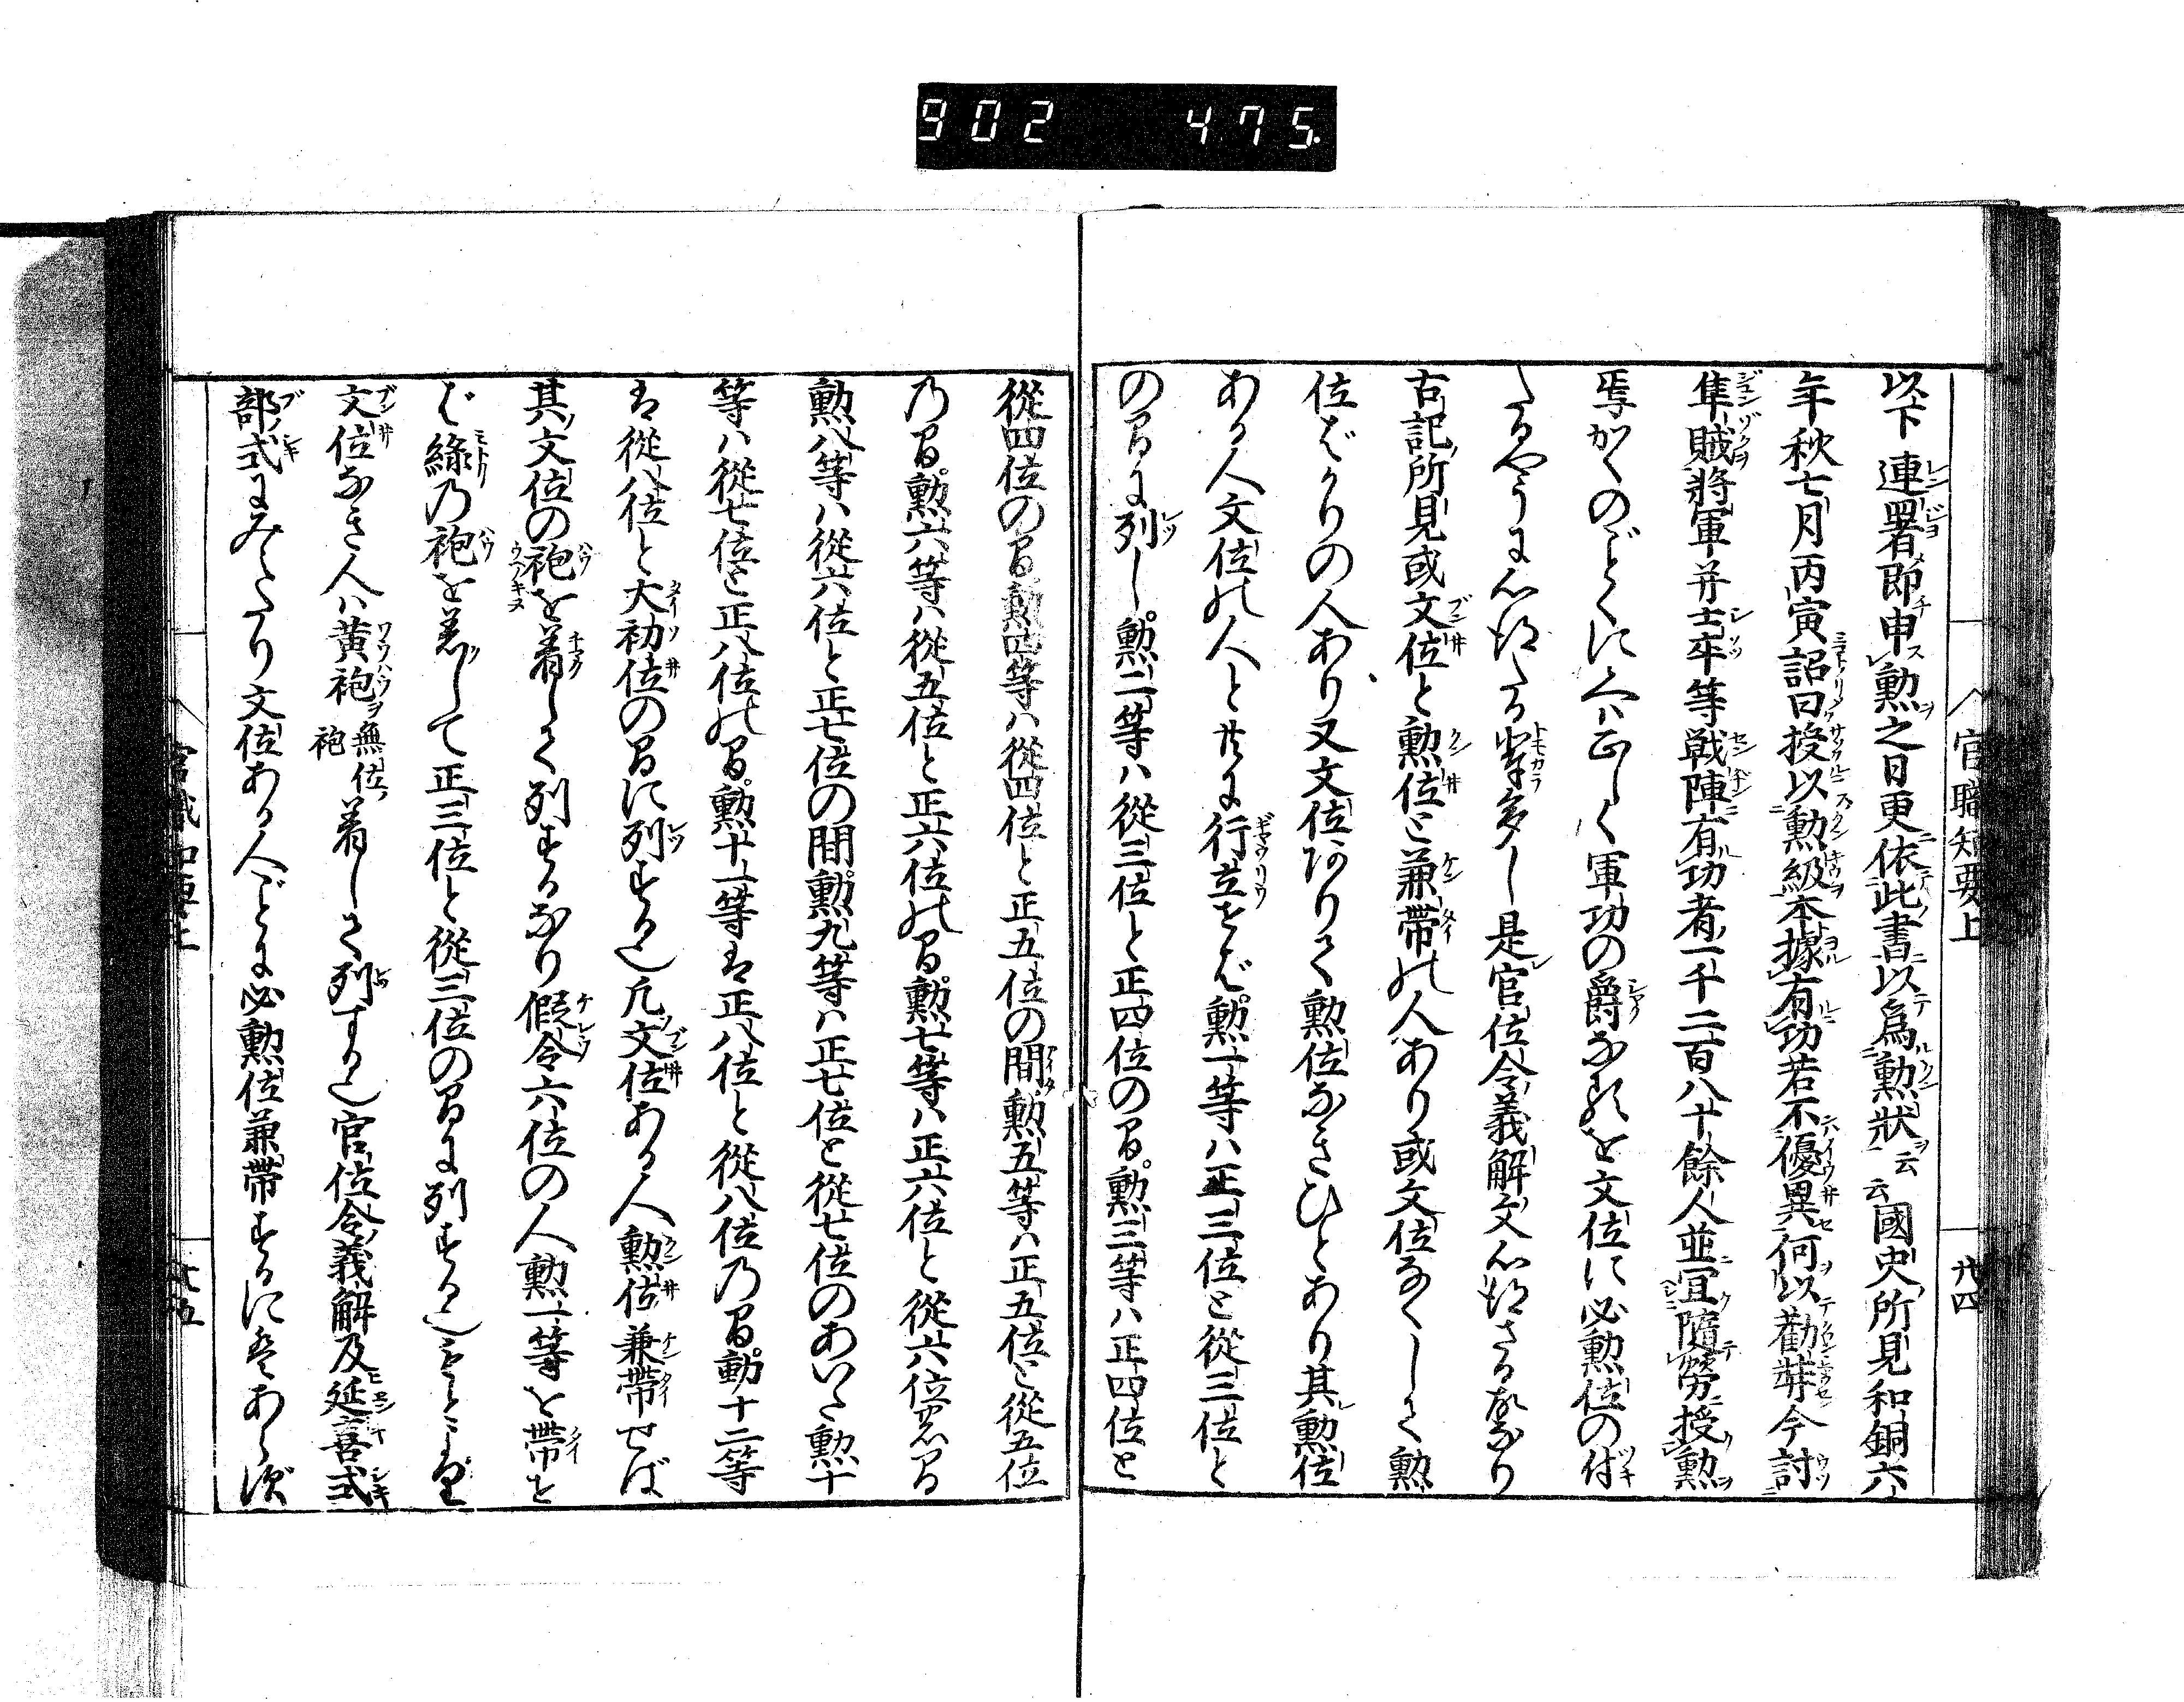 902 475.
官職知要上
廿四
以下連署即申勲之日更依此書以爲勲狀云云國史所見和銅六
年秋七月丙寅詔曰授以勲級本據有功若不優異何以勸奬今討
隼賊將軍并士卒等戦陣有功者一千二百八十餘人並宜隨勞授勲
焉かくのごとくに
軍功の爵なるを文位に必勲位の付
たるやうに心得たる輩多し是官位令義解文心得ざる故なり
古記所見或文位と勲位と兼帶の人あり或文位なくして勲
位ばかりの人あり又文位ありて勲位なきひとあり其勲位
ある人文位の人と共に行立をば勲一等ハ正三位と從三位と
の間に列し勲二等ハ從三位と正四位の間勲三等ハ正四位と
從四位の間勲四等ハ從四位と正五位の間勲五等ハ正五位と從五位
乃間勲六等ハ從五位と正六位の間勲七等ハ正六位と從六位の間
勲八等ハ從六位と正七位の間勲九等ハ正七位と從七位のあいだ勲十
等ハ從七位と正八位の間勲十一等は正八位と從八位乃間勲十二等
は從八位と大初位の間に列する也凡文位ある人勲位兼帶せば
其文位の袍を着して列するなり假令六位の人勲一等を帶せ
ば綠乃袍を着して正三位と從三位の間に列する也
文位なき人ハ黄袍無位袍着して列する也官位令義解及延喜式
部式にみえたり文位ある人ごとに必勲位兼帶するにはあらず